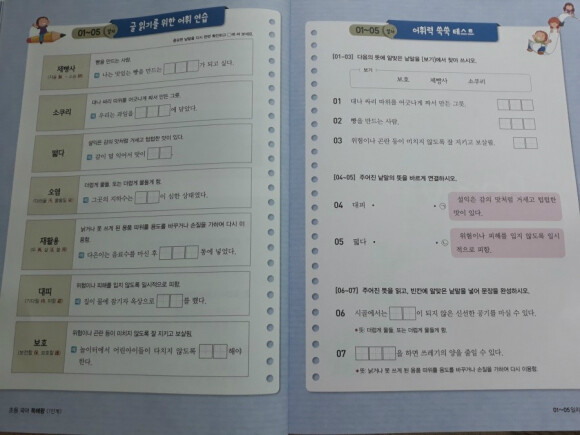 01~05
글 읽기를 위한 어휘 연습
제빵사
빵을 만드는 사람.
나는 맛있는 빵을 만드는 가 되고 싶다.
소쿠리
대나 싸리 따위를 어긋나게 짜서 만든 그릇.
우리는 과일을 에 담았다.
떫다
설익은 감의 맛처럼 거세고 텁텁한 맛이 있다.
감이 덜 익어서 맛이
오염
더럽게 물듦. 또는 더럽게 물들게 함.
그곳의 지하수는 이 심한 상태였다.
재활용
낡거나 못 쓰게 된 물품 따위를 용도를 바꾸거나 손질을 가하여 다시 이용함.
다은이는 음료수를 마신 후 통에 넣었다.
대피
위험이나 피해를 입지 않도록 일시적으로 피함.
물에 잠기자 옥상으로 를 했다.
보호
위험이나 곤란 등이 미치지 않도록 잘 지키고 보살핌.
놀이터에서 어린아이들이 다치지 않도록 해야
한다.
초등 국어 독해왕 (1단계)
01~05
어휘력 쑥쑥 테스트
[01~03] 다음의 뜻에 알맞은 낱말을 [보기]에서 찾아 쓰시오.
보기
보호 제빵사 소쿠리
01 대나 싸리 따위를 어긋나게 짜서 만든 그릇.
02 빵을 만드는 사람.
03 위험이나 곤란 등이 미치지 않도록 잘 지키고 보살핌.
[04~05] 주어진 낱말의 뜻을 바르게 연결하시오.
04 대피 • • ㉠ 설익은 감의 맛처럼 거세고 텁텁한
맛이 있다.
05 떫다 • • ㉡ 위험이나 피해를 입지 않도록 일시
적으로 피함.
[06~07] 주어진 뜻을 읽고, 빈칸에 알맞은 낱말을 넣어 문장을 완성하시오.
06 시골에서는 이 되지 않은 신선한 공기를 마실 수 있다.
뜻: 더럽게 물듦. 또는 더럽게 물들게 함.
07 을 하면 쓰레기의 양을 줄일 수 있다.
뜻: 낡거나 못 쓰게 된 물품 따위를 용도를 바꾸거나 손질을 가하여 다시 이용함.
01~05